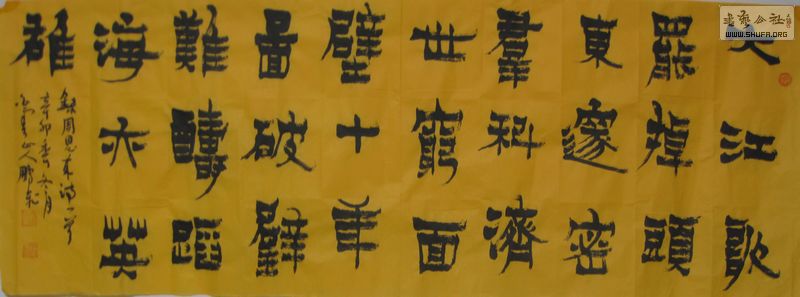 大江歌
罷掉頭
東邃密
羣科濟
世窮面
壁十年
啚破壁
難醻蹈
海亦英
雄
錄周恩来诗一首
辛卯季冬月
山人鹏
書藝公社
WWW.SHUFA.ORG